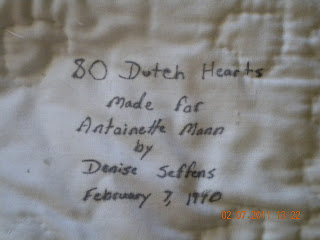 80 Dutch Hearts
Made for
Antainette Mann
by
Denise Seffens
February 7, 1990